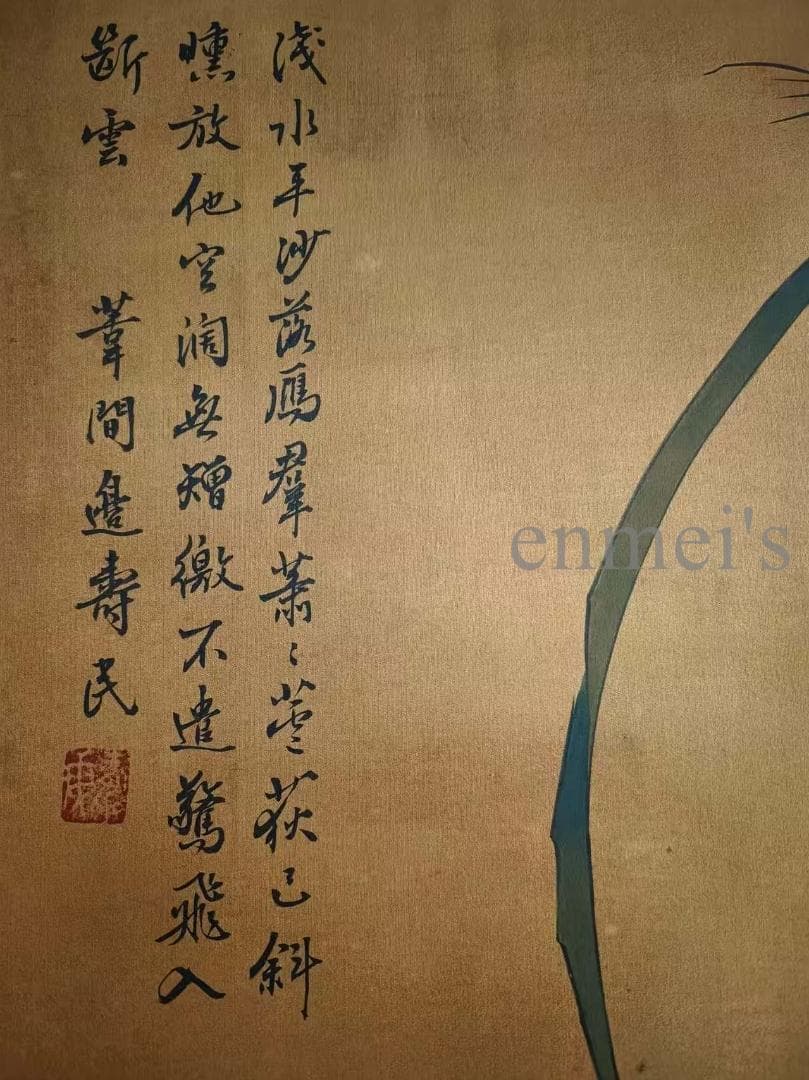 淺水平沙落鴈羣蕭〻蘆荻已斜
曛放他空闊無矰繳不遣驚飛入
斷雲 葦間邊壽民
enmei's